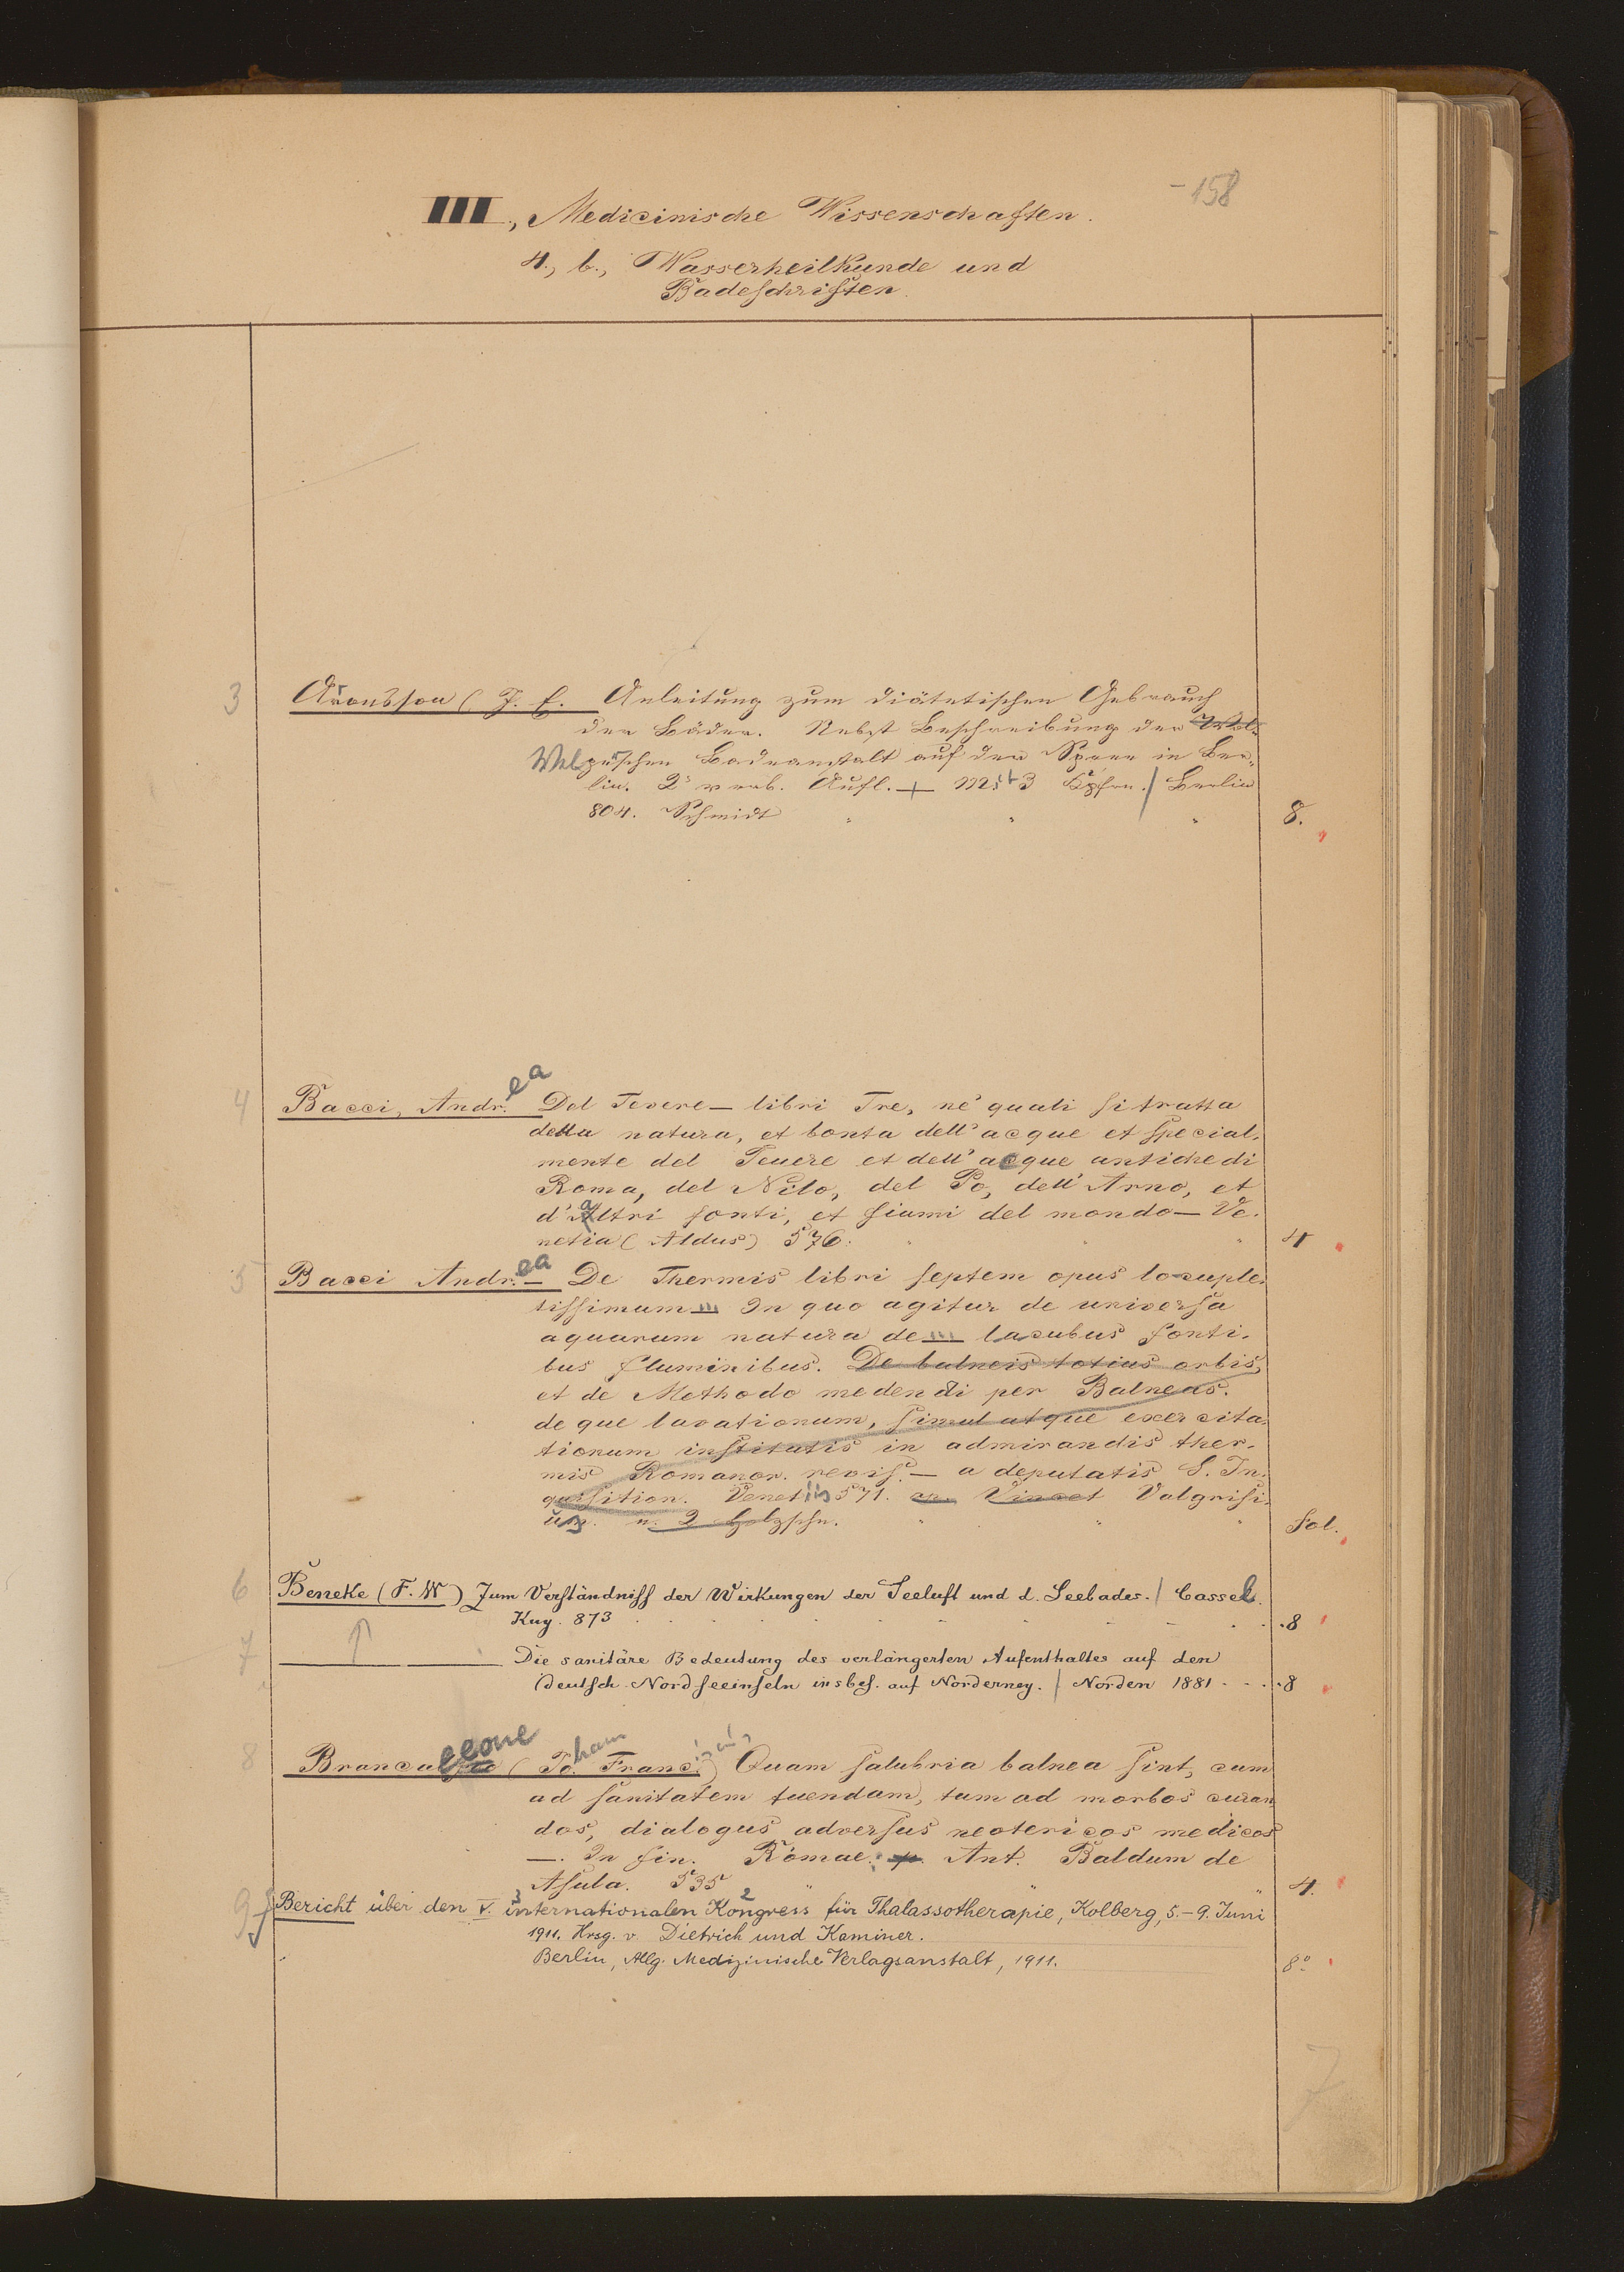 -158
III., Medicinische Wissenschaften.
4., b., Wasserheilkunde und
Badeschriften.
3 Aronsson (J. E. Anleitung zum diätetischen Gebrauch
der Bäder. Nebst Beschreibung der
Welperschen Badeanstalt auf der Spree in Ber-
lin. 2e verb. Aufl. + Mit 3 Kpfrn. / Berlin
804. Schmidt " " " 8.
4 Bacci, Andrea Del Tevere — libri Tre, ne' quali si tratta
della natura, et bonta dell' acque et special-
mente del Teuere et dell' acque antiche di
Roma, del Nilo, del Po, dell' Arno, et
d'altri fonti, et fiumi del mondo — Ve-
netia (Aldus) 576. " " " 4
5 Bacci Andrea — De Thermis libri septem opus locuple-
tissimum ... In quo agitur de universa
aquarum natura de ... lacubus fonti-
bus fluminibus. De balneis totius orbis,
et de Methodo medendi per Balneas.
de que lavationum, simul atque exercita-
tionum institutis in admirandis ther-
mis Romanor. revis. — a deputatis S. In-
quisition. Venetiis 571. ap. Vincet Valgrisi-
um. m. 2 Holzschn. " " " Fol.
6 Beneke (F. W) Zum Verständniss der Wirkungen der Seeluft und d. Seebades. / Cassel.
Kay. 873 . . . 8
7 ——— Die sanitäre Bedeutung des verlängerten Aufenthaltes auf den
deutsch. Nordseeinseln insbes. auf Norderney. / Norden 1881 . . . 8
8 Brancaleone (Joham Francis) Quam salubria balnea sint, cum
ad sanitatem tuendam, tum ad morbos curan
dos, dialogus adversus neotericos medicos
—. In fin. Romae: p. Ant. Baldum de
Asula. 535 " " " 4.
9 Bericht über den V. 3 internationalen Kongress 2 für Thalassotherapie, Kolberg, 5.-9. Juni
1911. Hrsg. v. Dietrich und Kaminer.
Berlin, Allg. Medizinische Verlagsanstalt, 1911. 8°
7